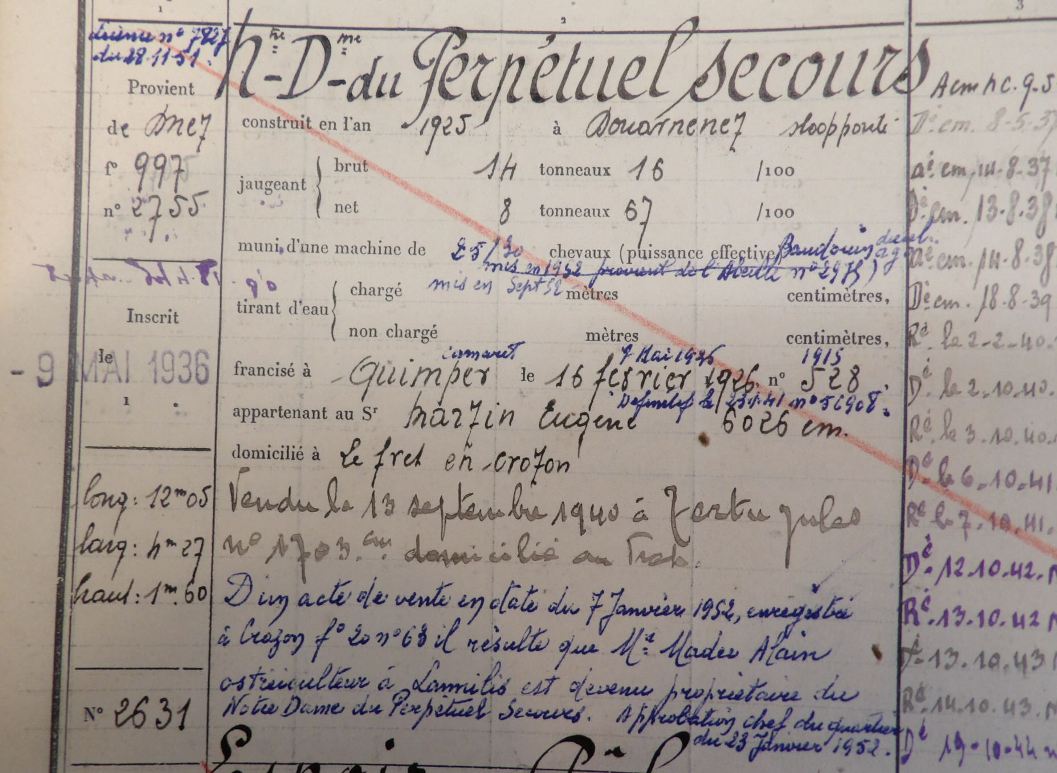 1
2
3
n° 7827
du 28.11.51.
Provient
de Dnez
f° 997
n° 2755
Inscrit
le
- 9 MAI 1936
1
long: 12m05
larg: 4m27
haut: 1m.60
N° 2631
Nre-Dme-du Perpétuel secours
construit en l'an 1925 à Douarnenez
jaugeant brut 14 tonneaux 16 /100
net 8 tonneaux 67 /100
muni d'une machine de 25/30 chevaux (puissance effective) Baudouin diesel
mis en 1952 provient de l'Abeille
mis en Sept 52
tirant d'eau chargé mètres centimètres,
non chargé mètres centimètres,
camaret 7 Mai 1926 1915
francisé à Quimper le 16 février 1926 n° 528
Definitif le n° 56908.
appartenant au Sr Martin Eugène 6026 cm.
domicilié à Le fret en Crozon
Vendu le 13 septembre 1940 à Jules
n° 1703 domicilié au
D'un acte de vente en date du 7 Janvier 1952, enregistré
à Crozon f° 20 n° 63 il résulte que Mr Madec Alain
ostréiculteur à Lannilis est devenu propriétaire du
Notre Dame du Perpétuel Secours. Approbation chef du quartier
du 23 Janvier 1952.
Arm hc. 9-5
Dé cm. 8-5-37
aé cm. 14-8-37
Dé cm. 13-8-38
aé cm. 14-8-38
Dé cm. 18-8-39
Ré le 2-2-40
Dé le 2-10-40
Ré le 3.10.40
Dé le 6-10-41
Ré le 7.10.41
Dé 12.10.42
Ré 13.10.42
Dé 13.10.43
Ré 14.10.43
Dé 19-10-44